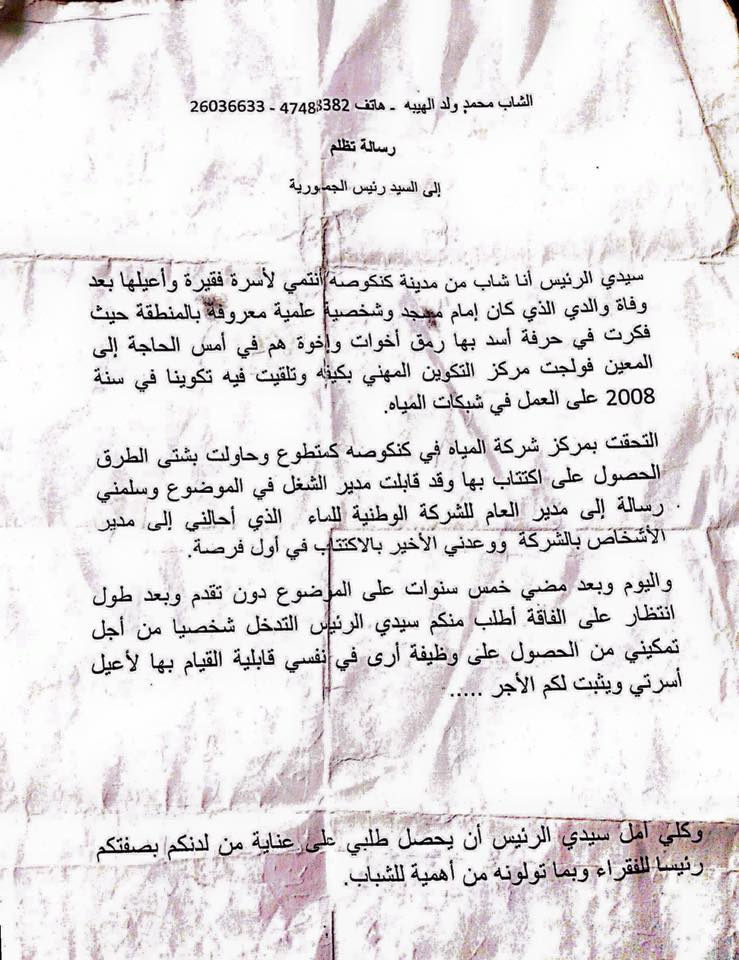 الشاب محمد ولد الهيبه - هاتف 47488382 - 26036633
رسالة تظلم
إلى السيد رئيس الجمهورية
سيدي الرئيس أنا شاب من مدينة كنكوصه أنتمي لأسرة فقيرة وأعيلها بعد
وفاة والدي الذي كان إمام مسجد وشخصية علمية معروفة بالمنطقة حيث
فكرت في حرفة أسد بها رمق أخوات وإخوة هم في أمس الحاجة إلى
المعين فولجت مركز التكوين المهني بكيفه وتلقيت فيه تكوينا في سنة
2008 على العمل في شبكات المياه.
التحقت بمركز شركة المياه في كنكوصه كمتطوع وحاولت بشتى الطرق
الحصول على اكتتاب بها وقد قابلت مدير الشغل في الموضوع وسلمني
رسالة إلى مدير العام للشركة الوطنية للماء الذي أحالني إلى مدير
الأشخاص بالشركة ووعدني الأخير بالاكتتاب في أول فرصة.
واليوم وبعد مضي خمس سنوات على الموضوع دون تقدم وبعد طول
انتظار على الفاقة أطلب منكم سيدي الرئيس التدخل شخصيا من أجل
تمكيني من الحصول على وظيفة أرى في نفسي قابلية القيام بها لأعيل
أسرتي ويثبت لكم الأجر .....
وكلي أمل سيدي الرئيس أن يحصل طلبي على عناية من لدنكم بصفتكم
رئيسا للفقراء وبما تولونه من أهمية للشباب.